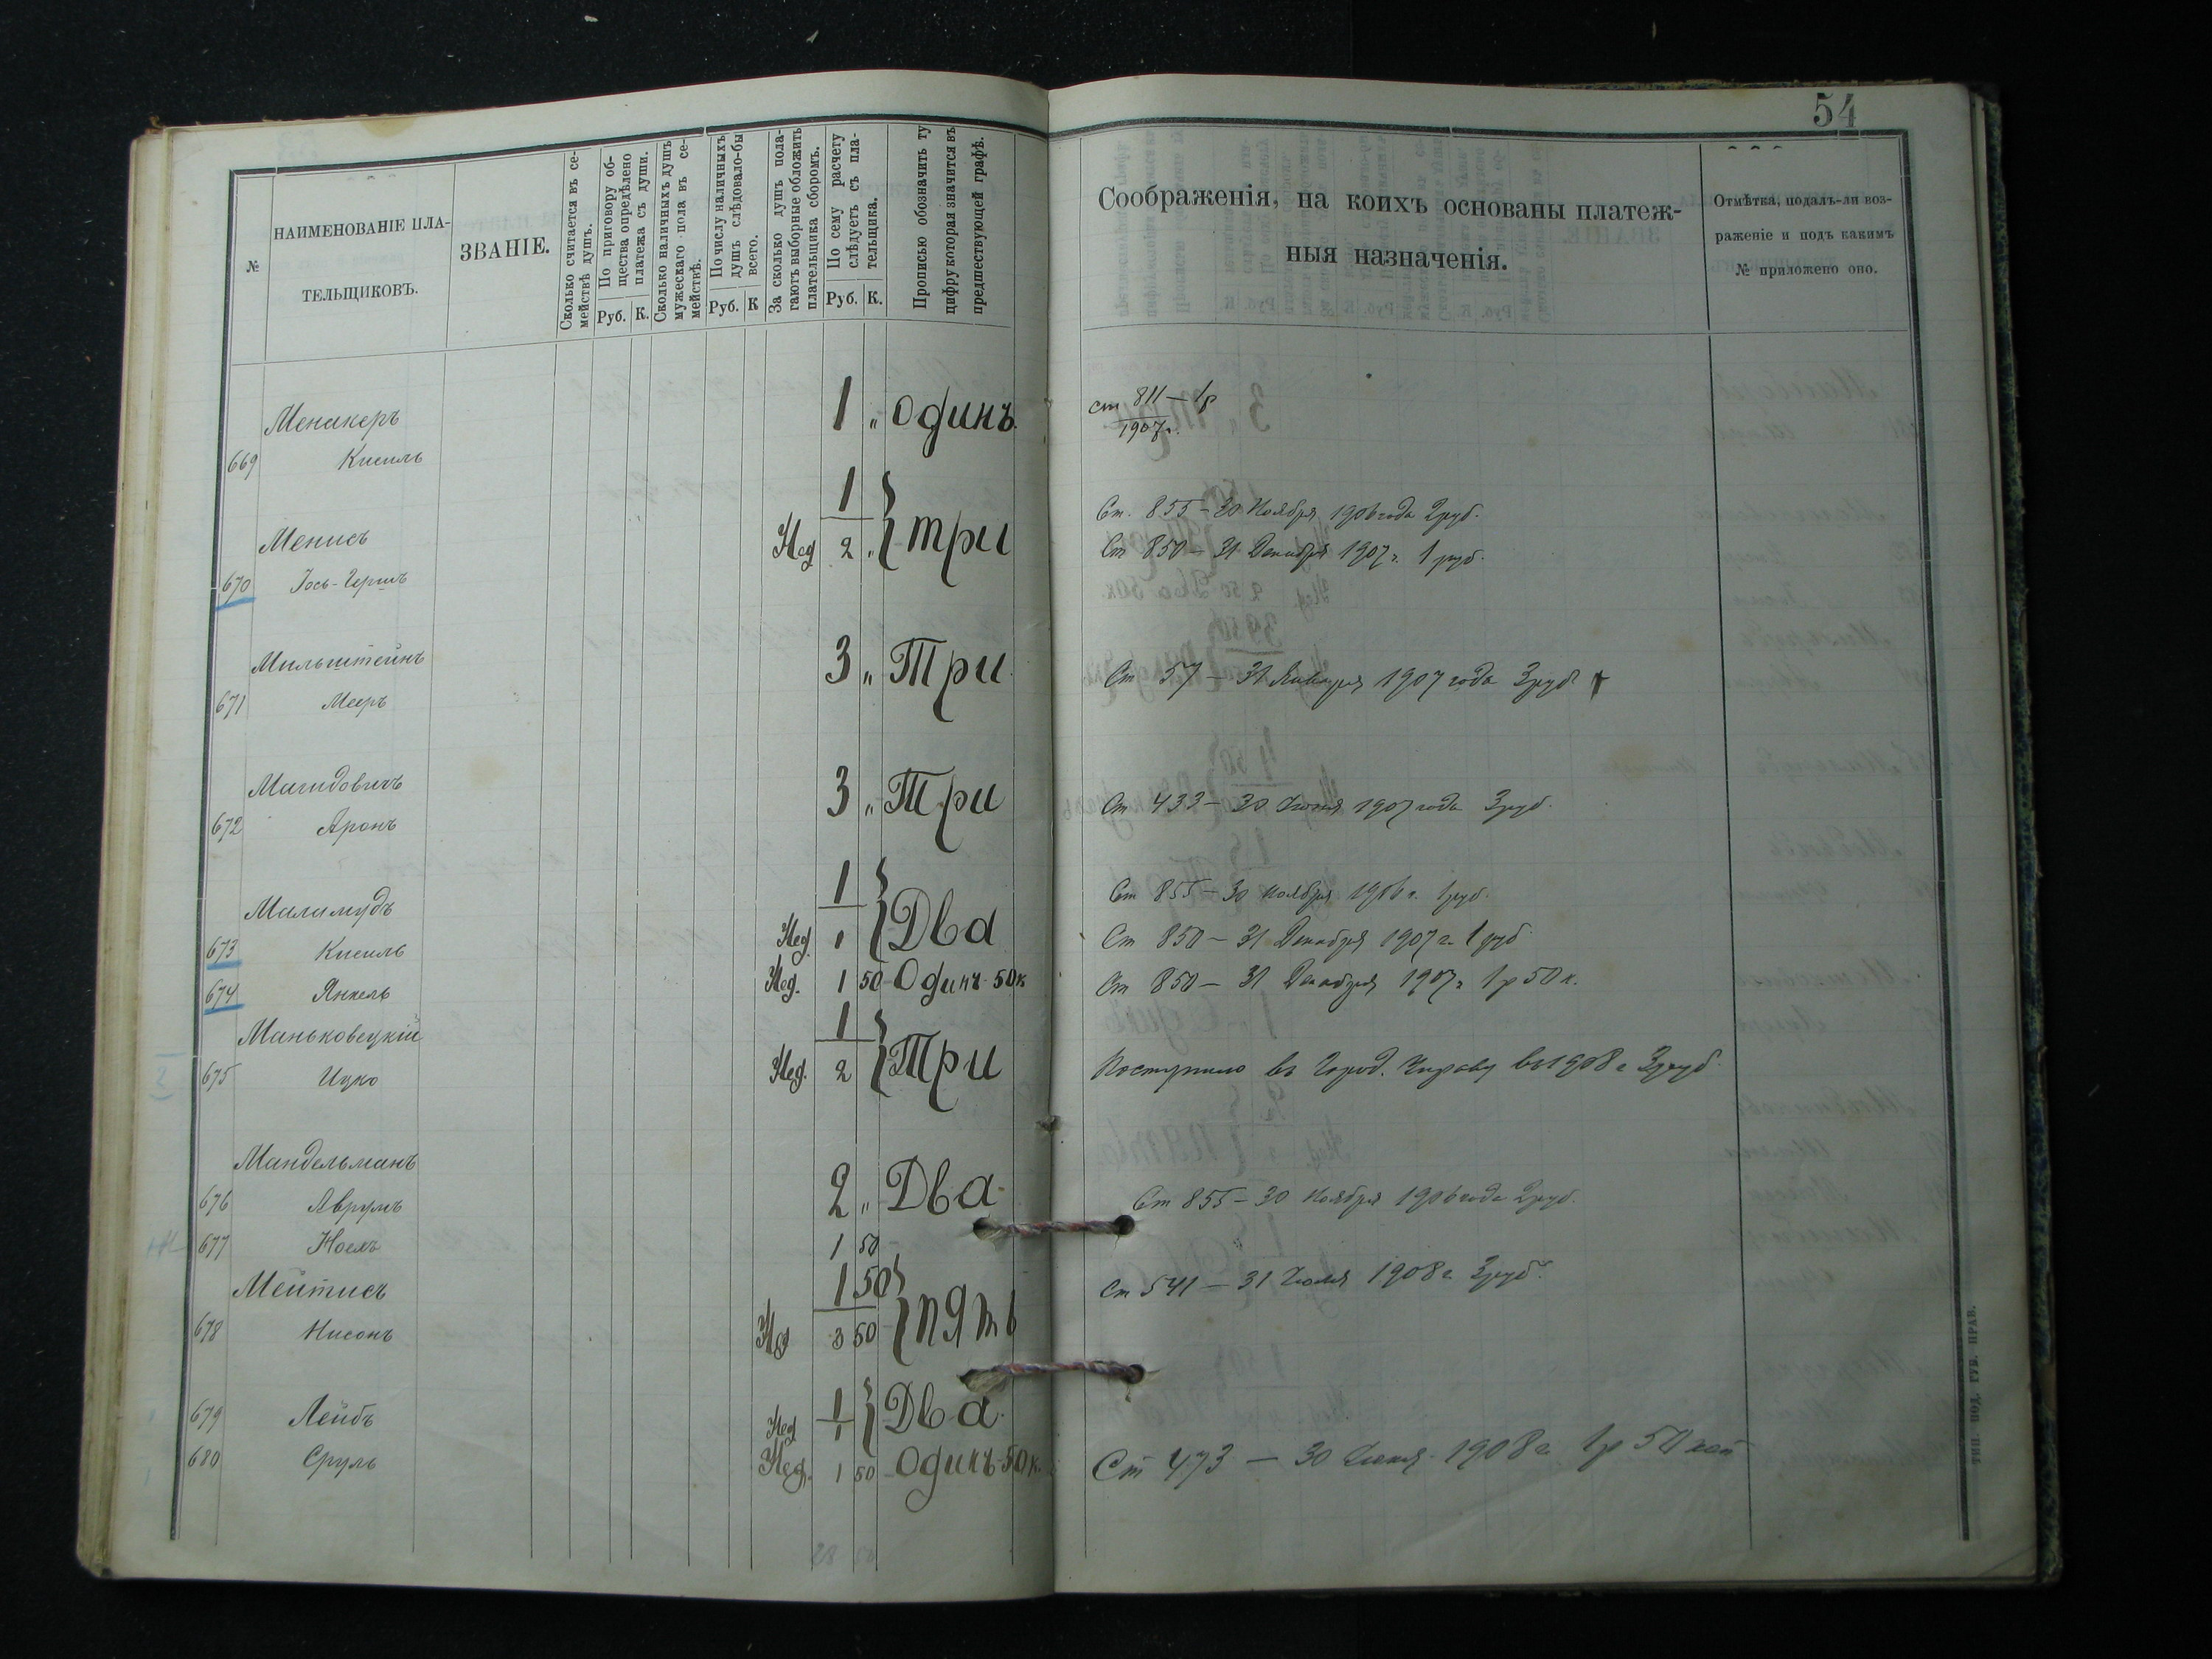 54
№
НАИМЕНОВАНІЕ ПЛА-
ТЕЛЬЩИКОВЪ.
ЗВАНІЕ.
Сколько считается въ се-
мействѣ душъ.
По приговору об-
щества опредѣлено
платежа съ души.
Руб. К.
Сколько наличныхъ душъ
мужескаго пола въ се-
мействѣ.
По числу наличныхъ
душъ слѣдовало-бы
всего.
Руб. К
За сколько душъ пола-
гаютъ выборные обложить
плательщика сборомъ.
По сему расчету
слѣдуетъ съ пла-
тельщика.
Руб. К.
Прописью обозначить ту
цифру которая значится въ
предшествующей графѣ.
Соображенія, на коихъ основаны платеж-
ныя назначенія.
Отмѣтка, подалъ-ли воз-
раженіе и подъ какимъ
№ приложено оно.
Менакеръ 1 " Одинъ ст 811 — 1р
1907г.
669 Кисиль
1
Менисъ Нед 2 " три Ст. 855 — 30 Ноября 1906 года 2 руб.
Ст 850 — 31 Декабря 1907 г. 1 руб.
670 Іось-Гершъ
Мильштейнъ 3 " Три
671 Мееръ Ст 57 — 31 Января 1907 года 3 руб
Магидовичъ 3 " Три
672 Аронъ Ст 433 — 30 Іюня 1907 года 3 руб.
1
Маламудъ Два Ст 855 — 30 Ноября 1906 г. 1 руб.
673 Кисиль Нед. 1 Ст 850 — 31 Декабря 1907 г. 1 руб
674 Янкель Нед. 1 50 Одинъ 50 к Ст 850 — 31 Декабря 1907 г 1 р 50 к.
Маньковецкій 1
675 Ицко Нед. 2 Три Поступило въ Город. Управу въ 1908 г 3 руб.
Мандельманъ
676 Аврумъ 2 " Два Ст 855 — 30 Ноября 1906 года 2 руб.
677 1 50
Мейтисъ 1 50 Ст 541 — 31 Іюля 1908 г 3 руб.
678 Нисонъ Нед 3 50 пять
679 Лейбъ 1 Нед 1 Два
680 Сруль Нед. 1 50 Одинъ 50 к. Ст 473 — 30 Іюня 1908 г. 1 р 50 коп
28 50
ТИП. ПОД. ГУБ. ПРАВ.